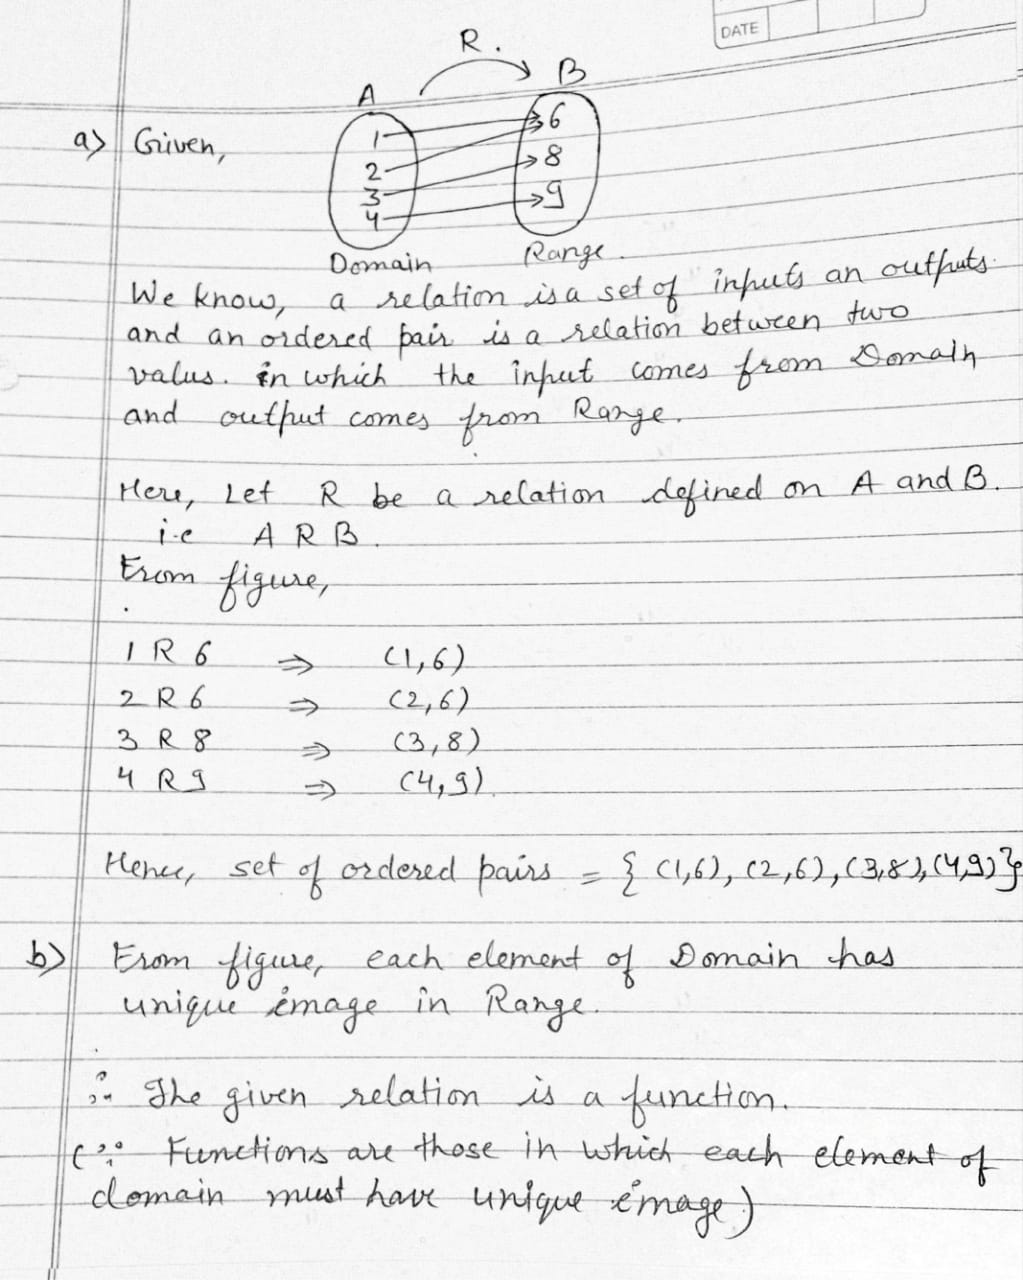 DATE
R.
A B
a) Given,
1 6
2 8
3 9
4
Domain Range.
We know, a relation is a set of inputs an outputs.
and an ordered pair is a relation between two
valus. in which the input comes from Domain
and output comes from Range.
Here, Let R be a relation defined on A and B.
i.e A R B.
From figure,
1 R 6 ⇒ (1,6)
2 R 6 ⇒ (2,6)
3 R 8 ⇒ (3,8)
4 R 9 ⇒ (4,9).
Hence, set of ordered pairs = { (1,6), (2,6), (3,8), (4,9)}
b) From figure, each element of Domain has
unique image in Range.
∴ The given relation is a function.
(∵ Functions are those in which each element of
domain must have unique image)